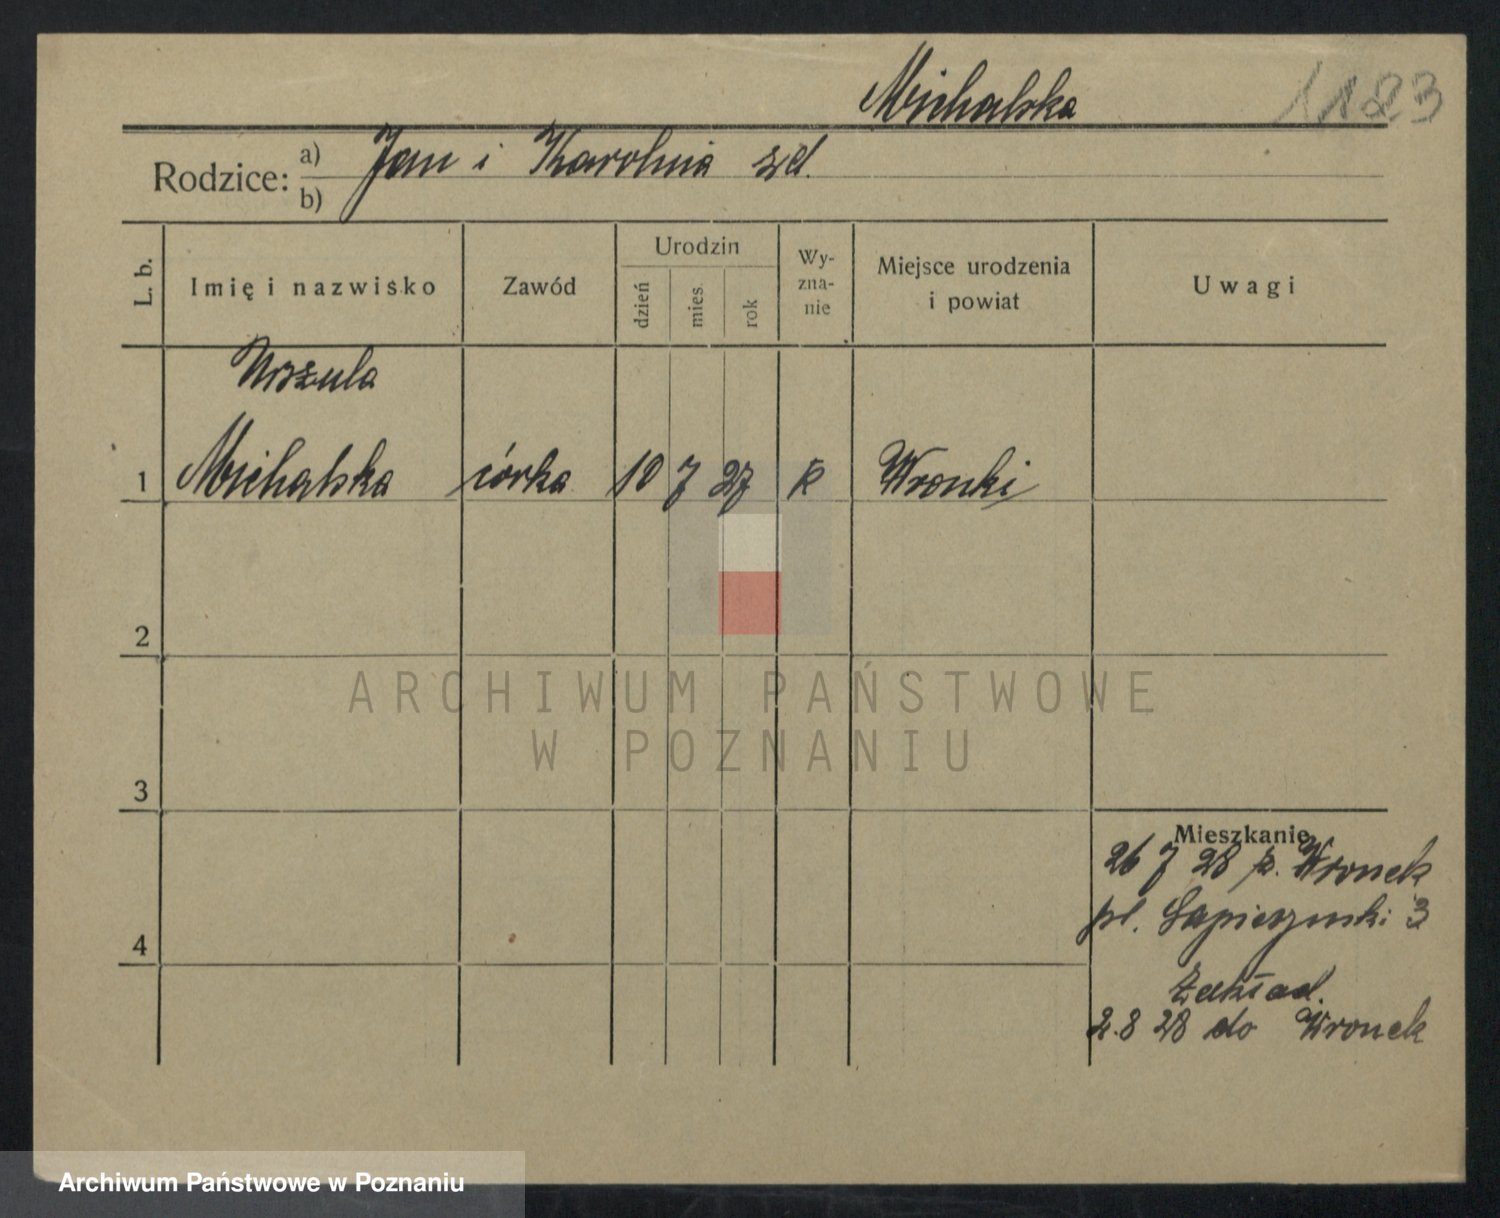 Michalska 1123
Rodzice: a) Jan i Karolina zd.
b)
L. b. Imię i nazwisko Zawód Urodzin dzień mies. rok Wy-zna-nie Miejsce urodzenia i powiat Uwagi
Urszula
1 Michalska córka 10 7 27 k Wronki
2
3
Mieszkanie
26 7 28 z. Wronek
pl. Sapieżyński 3
4
Zakład.
2.8 28 do Wronek
ARCHIWUM PAŃSTWOWE
W POZNANIU
Archiwum Państwowe w Poznaniu